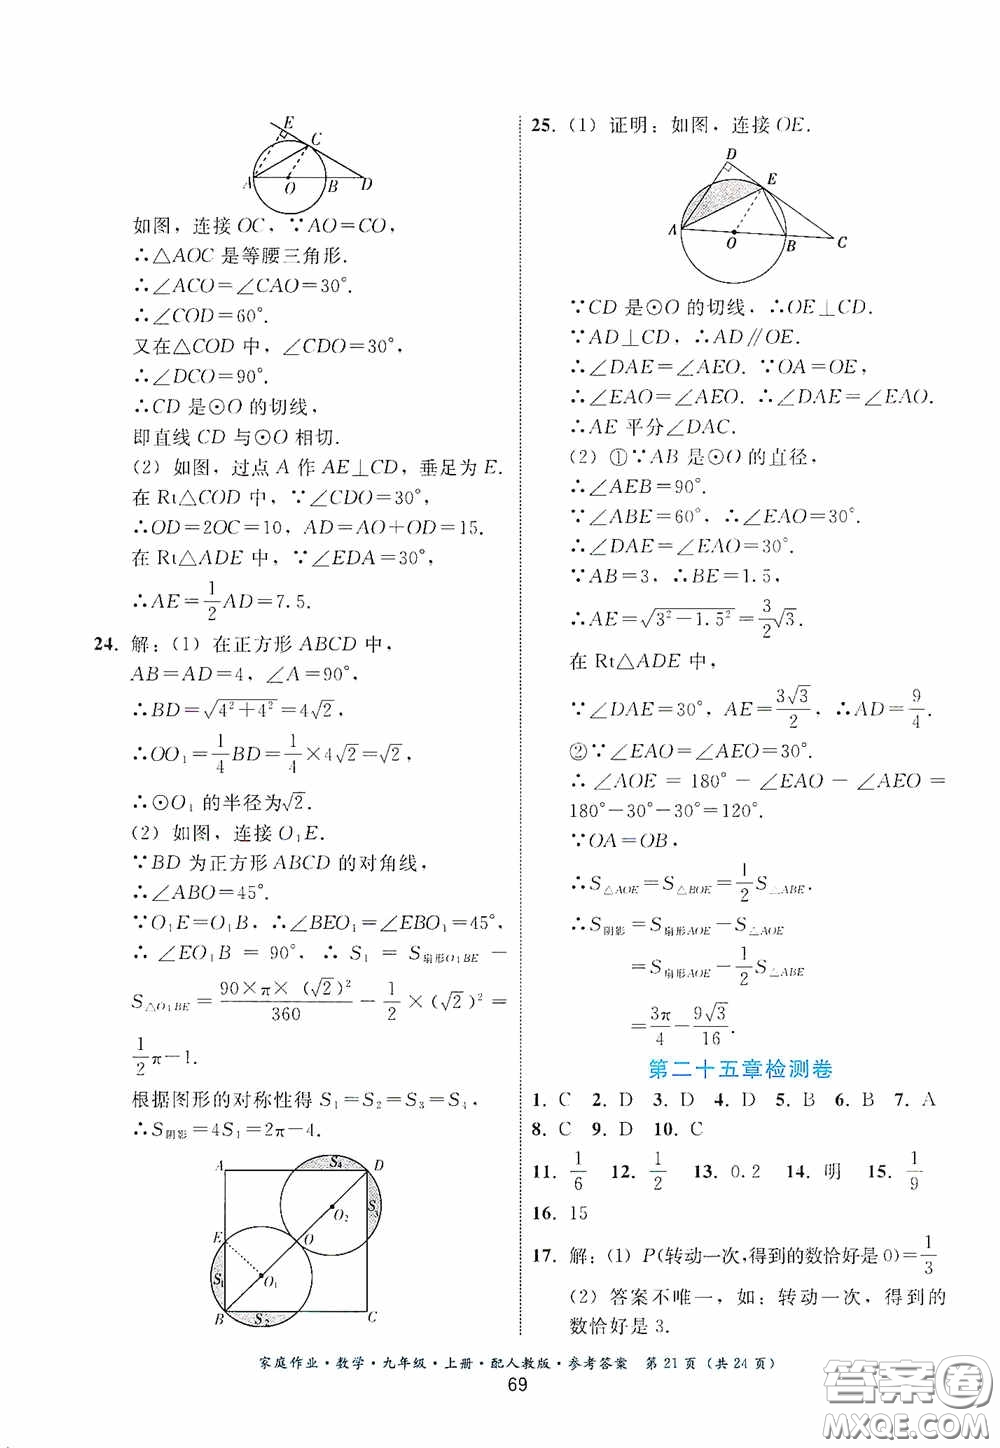 E
C
A
O
B
D
如图，连接 OC，∵AO＝CO，
∴△AOC 是等腰三角形.
∴∠ACO＝∠CAO＝30°.
∴∠COD＝60°.
又在△COD 中，∠CDO＝30°，
∴∠DCO＝90°.
∴CD 是⊙O 的切线，
即直线 CD 与⊙O 相切.
(2) 如图，过点 A 作 AE⊥CD，垂足为 E.
在 Rt△COD 中，∵∠CDO＝30°，
∴OD＝2OC＝10，AD＝AO＋OD＝15.
在 Rt△ADE 中，∵∠EDA＝30°，
∴AE＝1/2 AD＝7.5.
24. 解：(1) 在正方形 ABCD 中，
AB＝AD＝4，∠A＝90°，
∴BD＝√(4²＋4²)＝4√2，
∴OO₁＝1/4 BD＝1/4×4√2＝√2，
∴⊙O₁ 的半径为√2.
(2) 如图，连接 O₁E.
∵BD 为正方形 ABCD 的对角线，
∴∠ABO＝45°.
∵O₁E＝O₁B，∴∠BEO₁＝∠EBO₁＝45°，
∴∠EO₁B ＝ 90°，∴ S₁ ＝ S扇形O₁BE －
S△O₁BE＝(90×π×(√2)²)/360－1/2×(√2)²＝
1/2 π－1.
根据图形的对称性得 S₁＝S₂＝S₃＝S₄，
∴S阴影＝4S₁＝2π－4.
A
S₄
D
O₂
S₃
E
O
S₁
O₁
B
S₂
C
25. (1) 证明：如图，连接OE.
D
E
A
O
B
C
∵CD 是⊙O 的切线，∴OE⊥CD.
∵AD⊥CD，∴AD∥OE.
∴∠DAE＝∠AEO. ∵OA＝OE，
∴∠EAO＝∠AEO. ∴∠DAE＝∠EAO.
∴AE 平分∠DAC.
(2) ①∵AB 是⊙O 的直径，
∴∠AEB＝90°.
∵∠ABE＝60°，∴∠EAO＝30°.
∴∠DAE＝∠EAO＝30°.
∵AB＝3，∴BE＝1.5，
∴AE＝√(3²－1.5²)＝3/2 √3.
在 Rt△ADE 中，
∵∠DAE＝30°，AE＝3√3/2，∴AD＝9/4.
②∵∠EAO＝∠AEO＝30°.
∴∠AOE ＝ 180° － ∠EAO － ∠AEO ＝
180°－30°－30°＝120°.
∵OA＝OB，
∴S△AOE＝S△BOE＝1/2 S△ABE.
∴S阴影＝S扇形AOE－S△AOE
＝S扇形AOE－1/2 S△ABE
＝3π/4－9√3/16.
第二十五章检测卷
1. C 2. D 3. D 4. D 5. B 6. B 7. A
8. C 9. D 10. C
11. 1/6 12. 1/2 13. 0.2 14. 明 15. 1/9
16. 15
17. 解：(1) P(转动一次，得到的数恰好是 0)＝1/3
(2) 答案不唯一，如：转动一次，得到的
数恰好是 3.
家庭作业·数学·九年级·上册·配人教版·参考答案 第 21 页（共 24 页）
69
答案圈
MXQE.COM